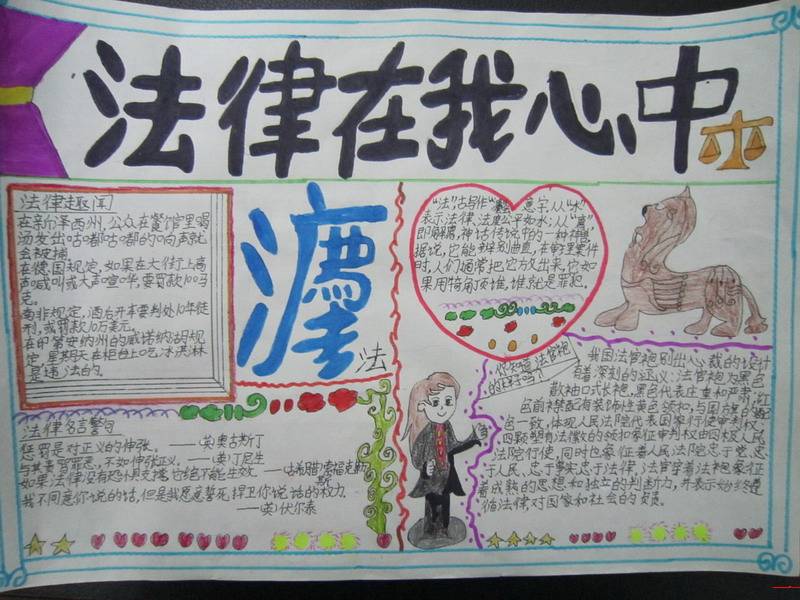 法律在我心中
法律趣闻
在新泽西州,公众在餐馆里喝
汤发出咕嘟咕嘟的响声就
会被捕
在德国规定,如果在大街上高
声喊叫或大声喧哗要罚款100马
克。
南非规定,酒后开车要判处10年徒
刑,或罚款10万美元。
在印第安纳州的威诺纳湖规
定,星期天在柜台上吃冰淇淋
是违法的。
灋
法
“法”,古写作“灋”,意字,从“水”
表示法律、法度公平如水;从“廌”
即解廌,神话传说中的一种神兽,
据说,它能辨别曲直,在审理案件
时,人们通常把它放出来,它如
果用犄角顶谁,谁就是罪犯。
法律名言警句
惩罚是对正义的伸张。——(英)奥古斯丁
与其责骂罪恶,不如伸张正义。——(英)丁尼生
如果法律没有恐怖支撑,它绝不能生效。——(古希腊)索福克勒
斯
我不同意你说的话,但是我愿意誓死捍卫你说话的权力。
——(英)伏尔泰
你知道法官袍
的
我国法官袍别出心裁的设计
有着深刻的涵义:法官袍为黑色
散袖口式长袍,黑色代表庄重和严肃;红
色前襟配有装饰性黄色领扣,与国旗的
色一致,体现人民法院代表国家行使审判权,
四颗塑有法徽的领扣象征审判权由四级人民
法院行使,同时也象征着人民法院忠于党、忠
于人民、忠于事实忠于法律,法官穿着法袍象征
着成熟的思想和独立的判断力,并表示始终遵
循法律,对国家和社会的负责。